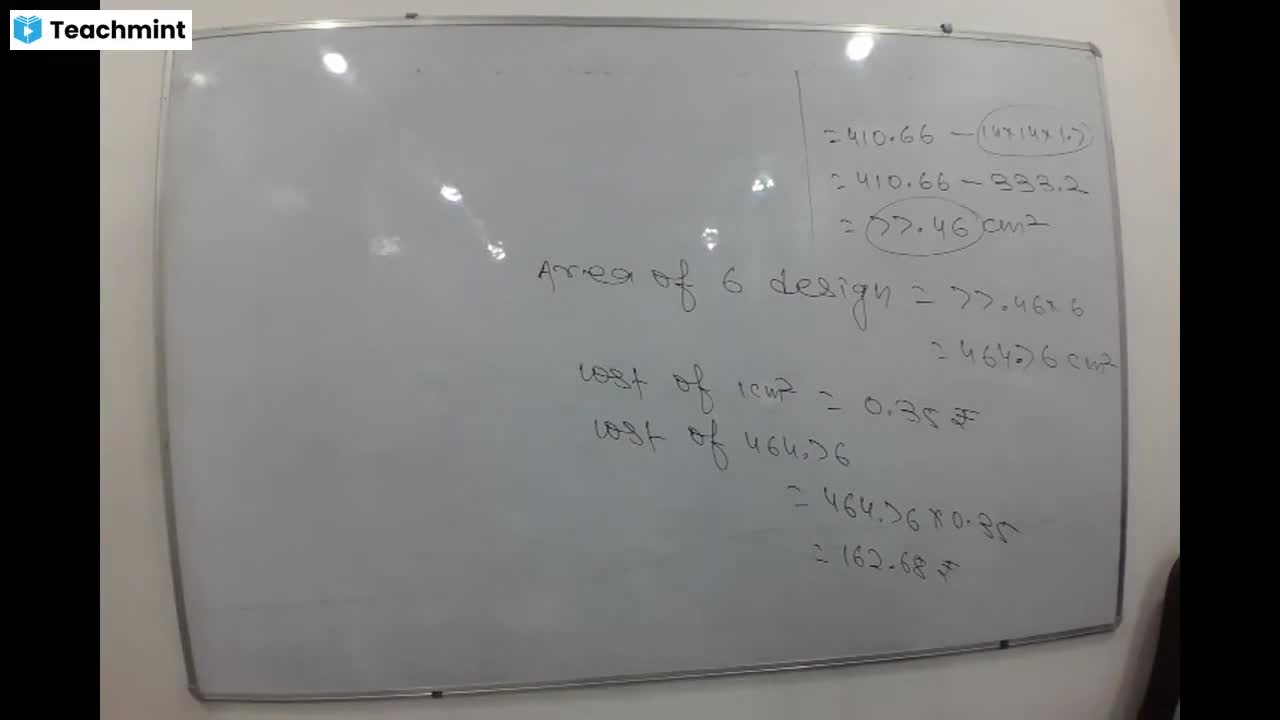 Teachmint
= 410.66 - 14×14×1.7
= 410.66 - 333.2
= 77.46 cm²
Area of 6 design = 77.46×6
= 464.76 cm²
cost of 1cm² = 0.35 ₹
cost of 464.76
= 464.76×0.35
= 162.68 ₹